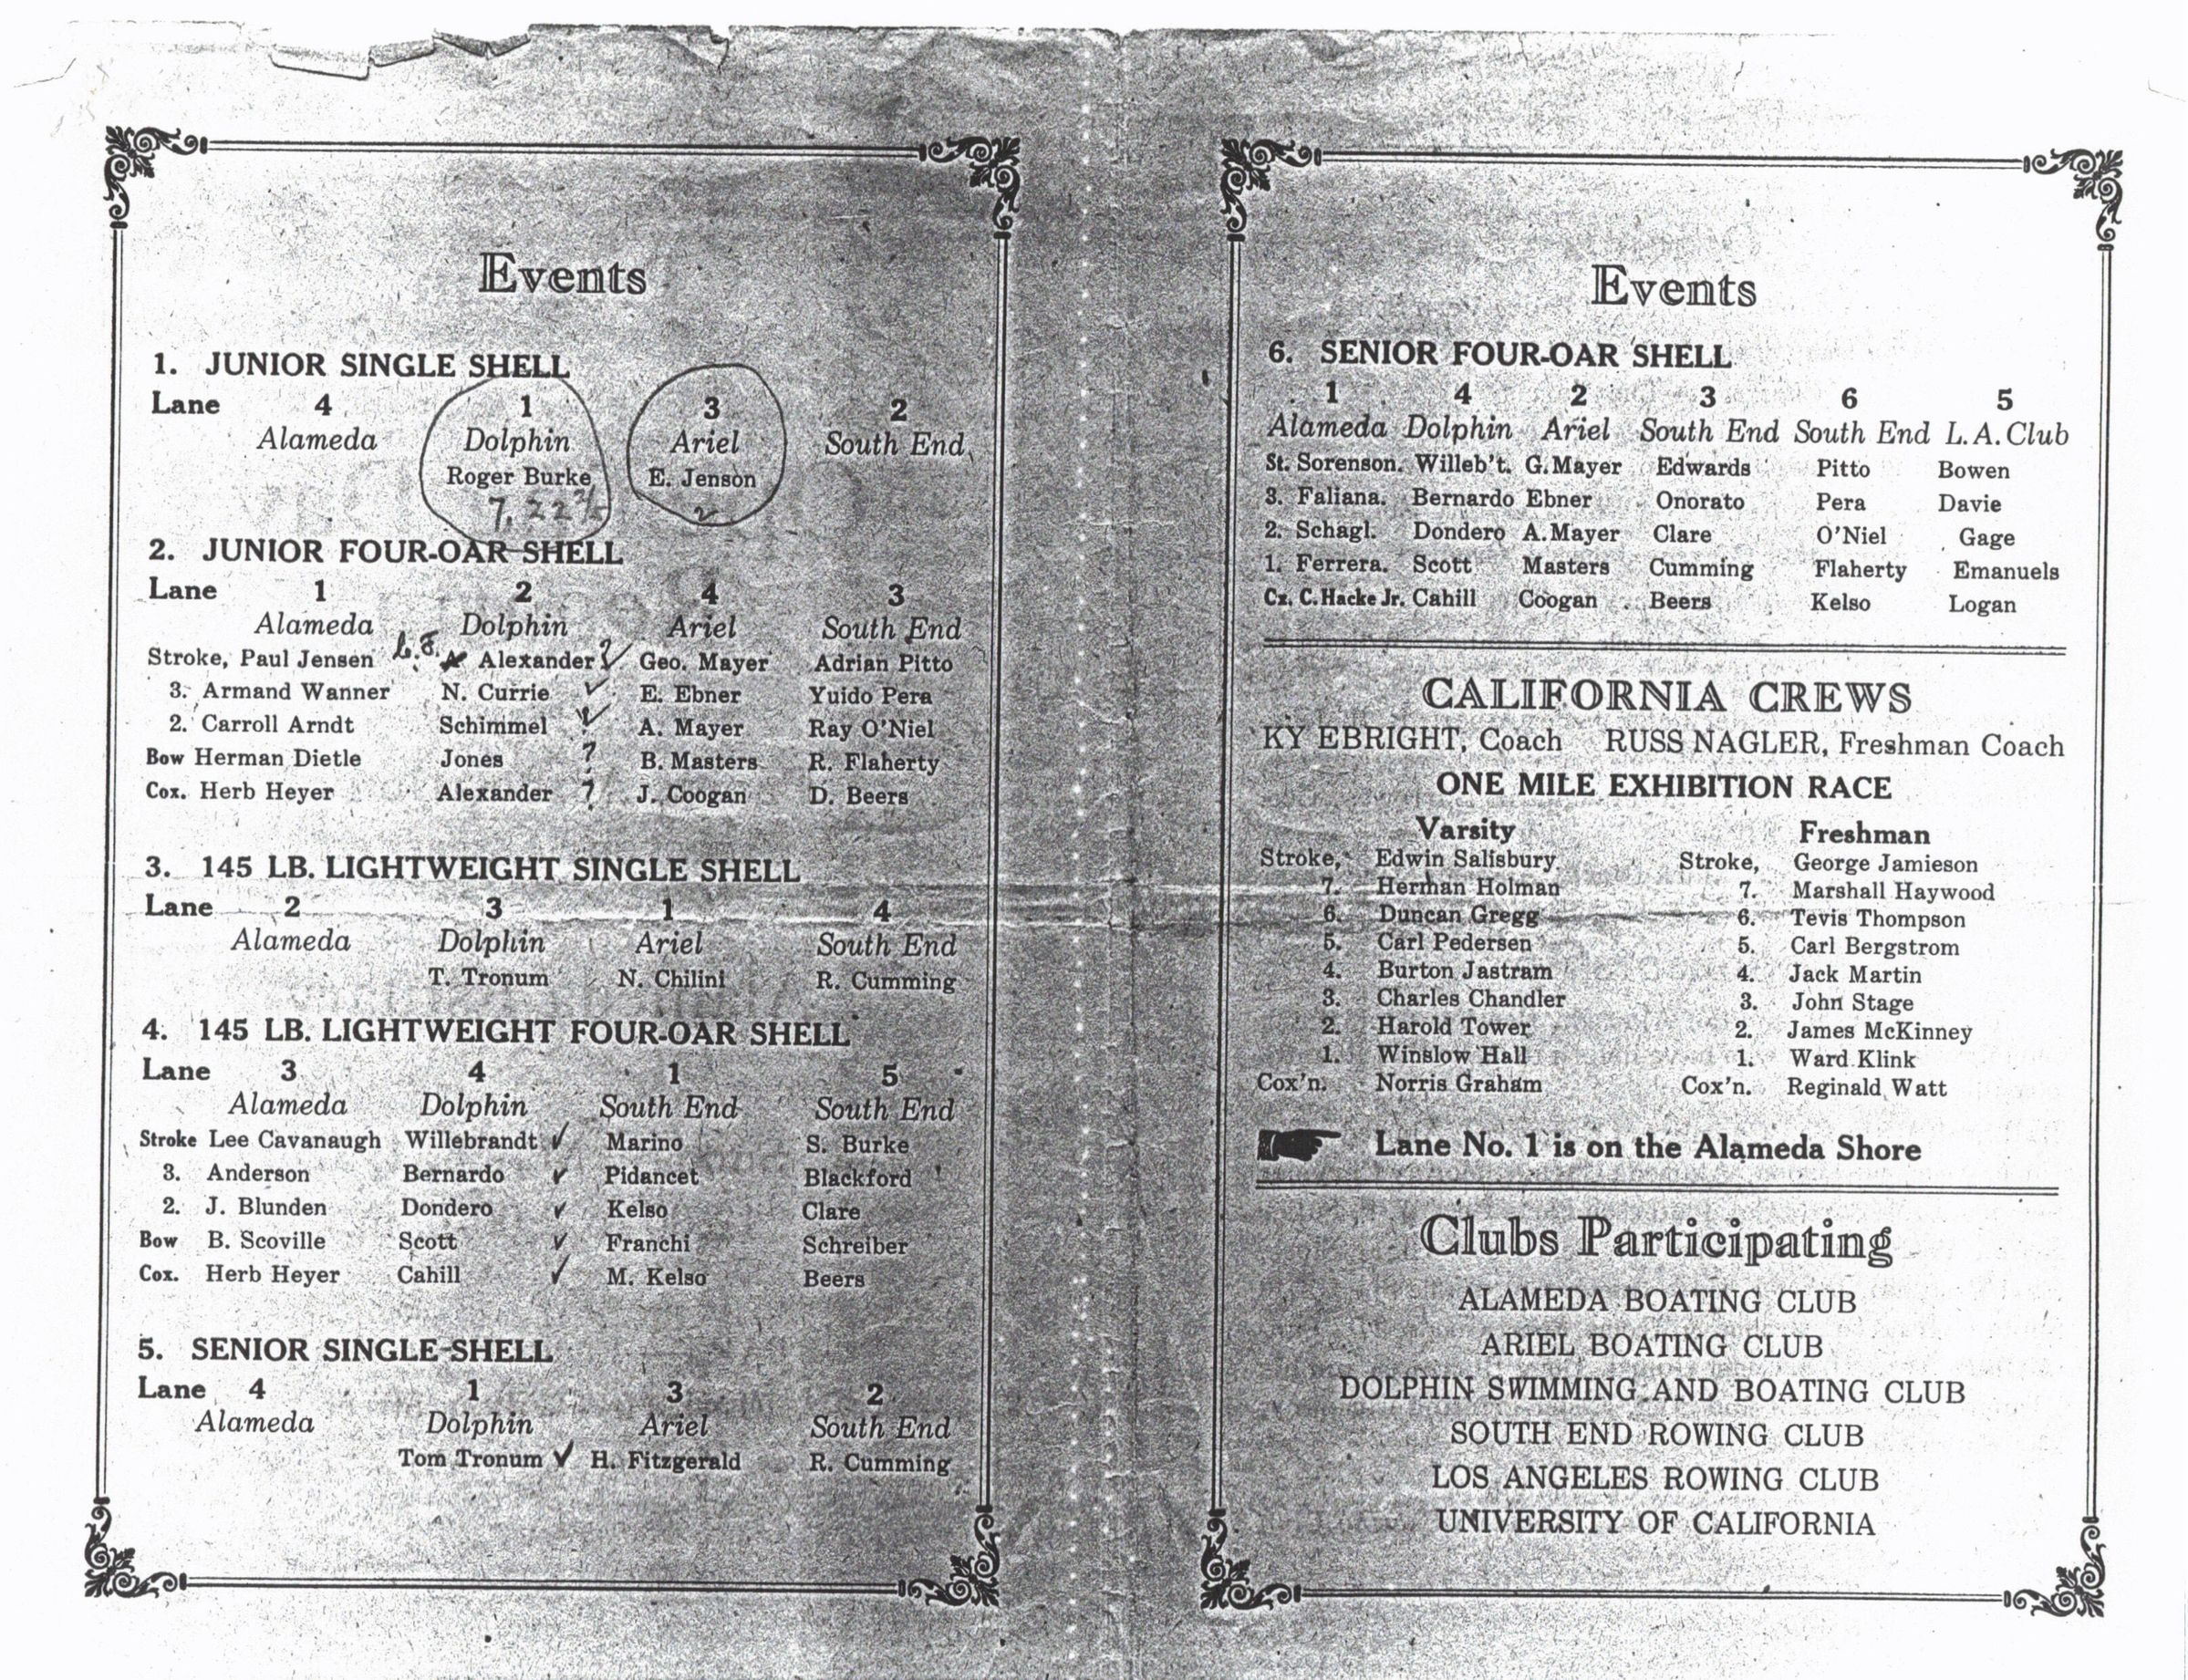 Events
1. JUNIOR SINGLE SHELL
Lane 4 1 3 2
Alameda Dolphin Ariel South End
Roger Burke E. Jenson
7.22 2
2. JUNIOR FOUR-OAR SHELL
Lane 1 2 4 3
Alameda Dolphin Ariel South End
Stroke, Paul Jensen Alexander ? ✓ Geo. Mayer Adrian Pitto
3. Armand Wanner N. Currie ✓ E. Ebner Yuido Pera
2. Carroll Arndt Schimmel ✓ A. Mayer Ray O'Niel
Bow Herman Dietle Jones ? B. Masters R. Flaherty
Cox. Herb Heyer Alexander ? J. Coogan D. Beers
3. 145 LB. LIGHTWEIGHT SINGLE SHELL
Lane 2 3 1 4
Alameda Dolphin Ariel South End
T. Tronum N. Chilini R. Cumming
4. 145 LB. LIGHTWEIGHT FOUR-OAR SHELL
Lane 3 4 1 5
Alameda Dolphin South End South End
Stroke Lee Cavanaugh Willebrandt ✓ Marino S. Burke
3. Anderson Bernardo ✓ Pidancet Blackford
2. J. Blunden Dondero ✓ Kelso Clare
Bow B. Scoville Scott ✓ Franchi Schreiber
Cox. Herb Heyer Cahill ✓ M. Kelso Beers
5. SENIOR SINGLE SHELL
Lane 4 1 3 2
Alameda Dolphin Ariel South End
Tom Tronum ✓ H. Fitzgerald R. Cumming
Events
6. SENIOR FOUR-OAR SHELL
1 4 2 3 6 5
Alameda Dolphin Ariel South End South End L.A. Club
St. Sorenson. Willeb't. G. Mayer Edwards Pitto Bowen
3. Faliana. Bernardo Ebner Onorato Pera Davie
2. Schagl. Dondero A. Mayer Clare O'Niel Gage
1. Ferrera. Scott Masters Cumming Flaherty Emanuels
Cx. C. Hacke Jr. Cahill Coogan Beers Kelso Logan
CALIFORNIA CREWS
KY EBRIGHT, Coach RUSS NAGLER, Freshman Coach
ONE MILE EXHIBITION RACE
Varsity Freshman
Stroke, Edwin Salisbury Stroke, George Jamieson
7. Herman Holman 7. Marshall Haywood
6. Duncan Gregg 6. Tevis Thompson
5. Carl Pedersen 5. Carl Bergstrom
4. Burton Jastram 4. Jack Martin
3. Charles Chandler 3. John Stage
2. Harold Tower 2. James McKinney
1. Winslow Hall 1. Ward Klink
Cox'n. Norris Graham Cox'n. Reginald Watt
Lane No. 1 is on the Alameda Shore
Clubs Participating
ALAMEDA BOATING CLUB
ARIEL BOATING CLUB
DOLPHIN SWIMMING AND BOATING CLUB
SOUTH END ROWING CLUB
LOS ANGELES ROWING CLUB
UNIVERSITY OF CALIFORNIA